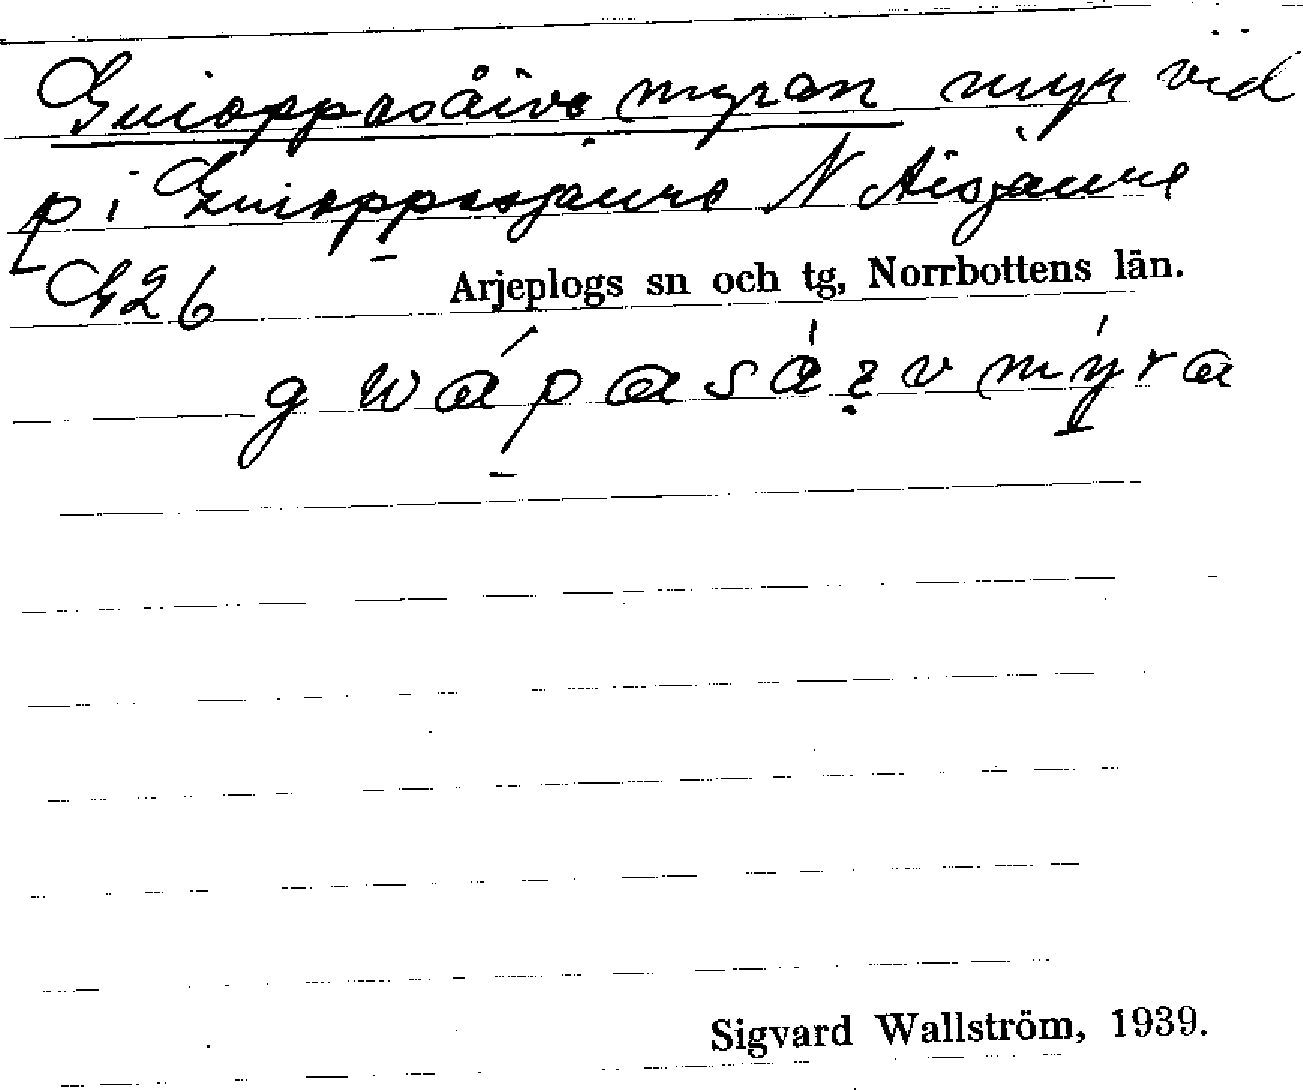 Guioppasåive myran myr vid
p i Guioppasjaure N Aisjaure
G26 Arjeplogs sn och tg, Norrbottens län.
Sigvard Wallström, 1939.